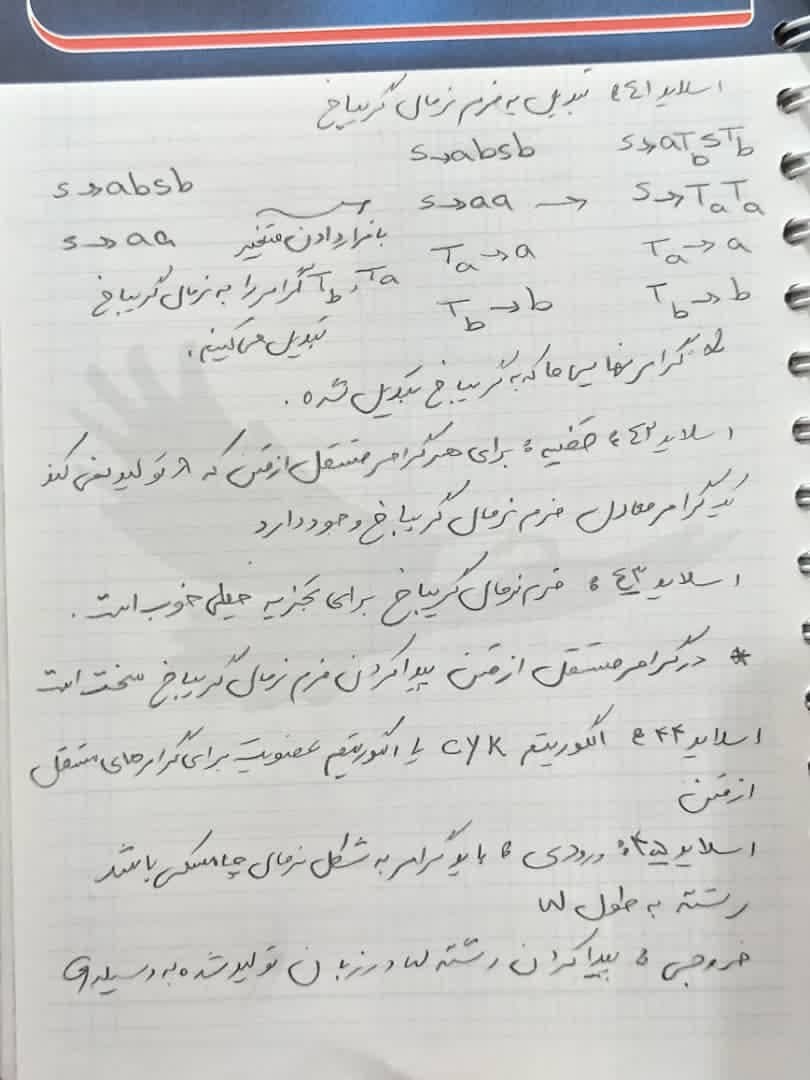 اسلاید ٤١: تبدیل به فرم نرمال گریباخ
S→abSb S→abSb S→aT_bST_b
S→aa با قرار دادن متغیر S→aa → S→T_aT_a
T_a و T_b گرامر را به نرمال گریباخ T_a→a T_a→a
تبدیل می کنیم. T_b→b T_b→b
گرامر نهایی ما که به گریباخ تبدیل شده.
اسلاید ٤٢: قضیه: برای هر گرامر مستقل از متن که λ تولید نمی کند
یک گرامر معادل فرم نرمال گریباخ وجود دارد
اسلاید ٤٣: فرم نرمال گریباخ برای تجزیه خیلی خوب است.
* در گرامر مستقل از متن پیدا کردن فرم نرمال گریباخ سخت است
اسلاید ۴۴: الگوریتم CYK یا الگوریتم عضویت برای گرامرهای مستقل
از متن
اسلاید ۴۵: ورودی: باید گرامر به شکل نرمال چامسکی باشد
رشته به طول w
خروجی: پیدا کردن رشته w در زبان تولید شده به وسیله G